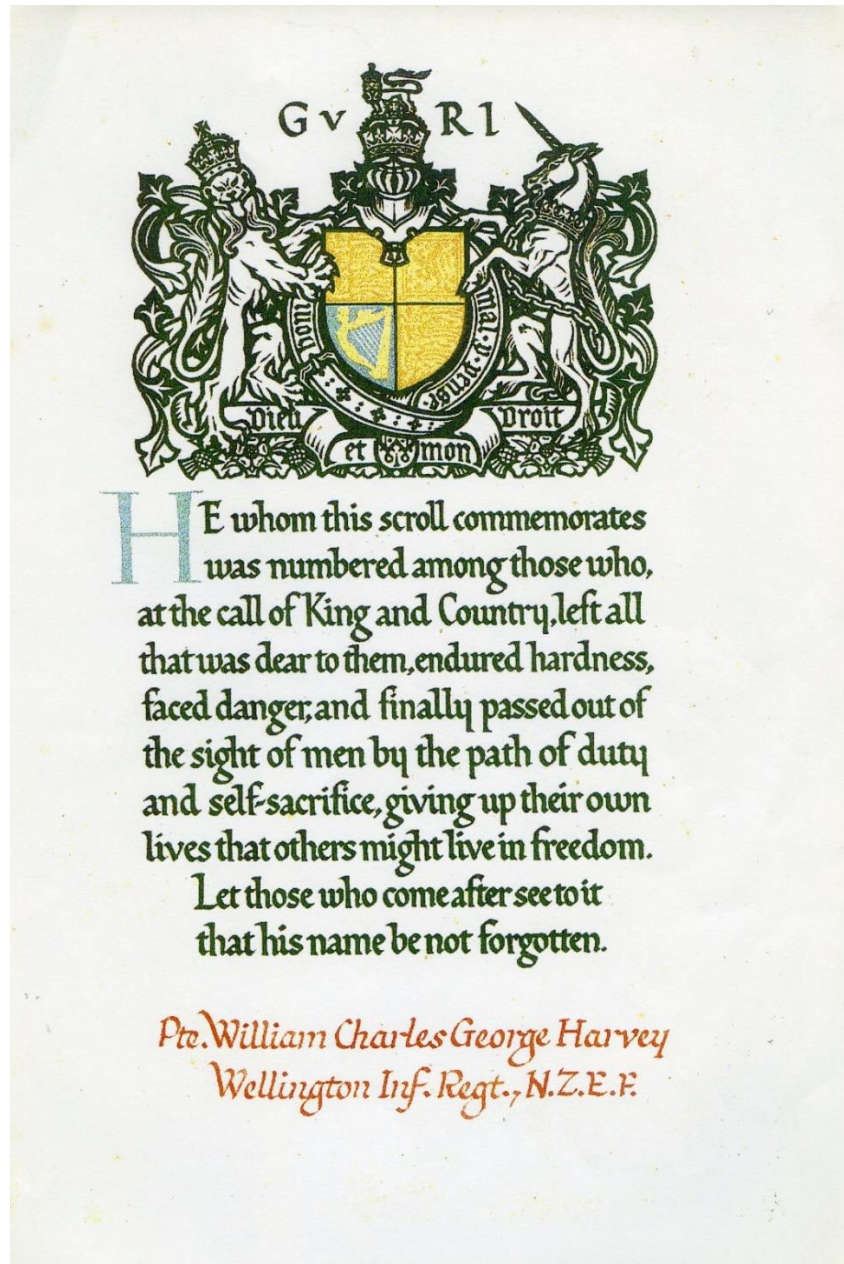 G V R I
Honi mal y pense
Dieu Droit
et mon
HE whom this scroll commemorates
was numbered among those who,
at the call of King and Country, left all
that was dear to them, endured hardness,
faced danger, and finally passed out of
the sight of men by the path of duty
and self-sacrifice, giving up their own
lives that others might live in freedom.
Let those who come after see to it
that his name be not forgotten.
Pte. William Charles George Harvey
Wellington Inf. Regt., N.Z.E.F.